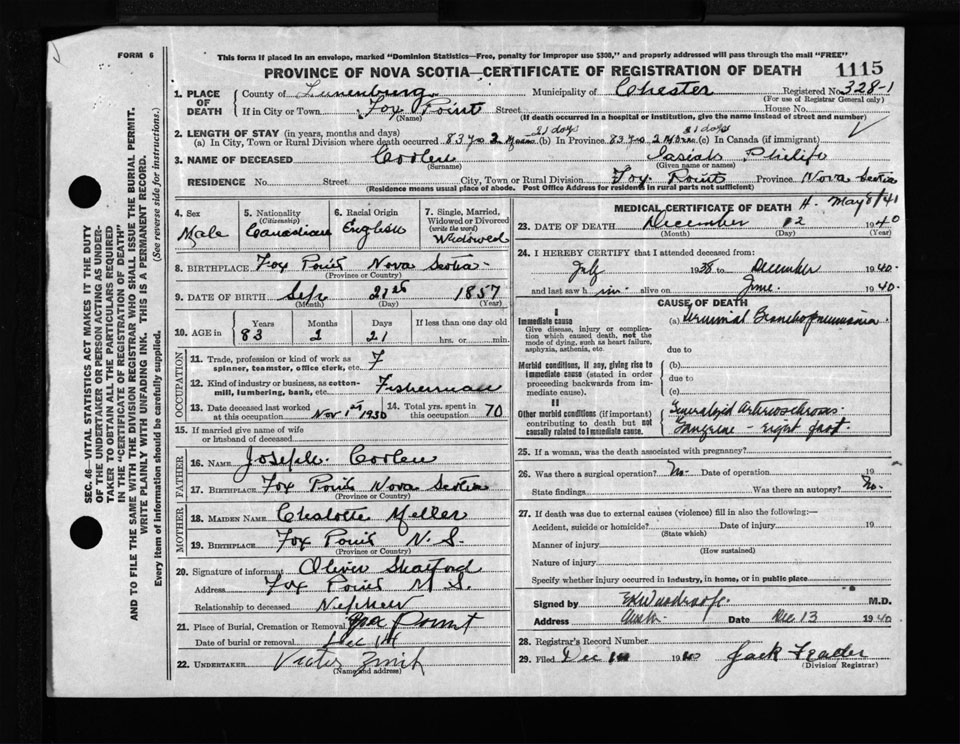 FORM 6
This form if placed in an envelope, marked "Dominion Statistics—Free, penalty for improper use $300," and properly addressed will pass through the mail "FREE"
PROVINCE OF NOVA SCOTIA—CERTIFICATE OF REGISTRATION OF DEATH
1115
1. PLACE OF DEATH
County of Lunenburg Municipality of Chester Registered No. 328-1
(For use of Registrar General only)
If in City or Town Fox Point Street House No.
(Name) (If death occurred in a hospital or institution, give the name instead of street and number)
2. LENGTH OF STAY (in years, months and days)
21 days 21 days
(a) In City, Town or Rural Division where death occurred 83 yrs 2 Mos (b) In Province 83 yrs 2 Mos (c) In Canada (if immigrant)
3. NAME OF DECEASED Coolen Isaiah Philip
(Surname) (Given name or names)
RESIDENCE No. Street City, Town or Rural Division Fox Point Province Nova Scotia
(Residence means usual place of abode. Post Office Address for residents in rural parts not sufficient)
SEC. 46—VITAL STATISTICS ACT MAKES IT THE DUTY
OF THE UNDERTAKER OR PERSON ACTING AS UNDER-
TAKER TO OBTAIN ALL THE PARTICULARS REQUIRED
IN THE "CERTIFICATE OF REGISTRATION OF DEATH"
AND TO FILE THE SAME WITH THE DIVISION REGISTRAR WHO SHALL ISSUE THE BURIAL PERMIT.
WRITE PLAINLY WITH UNFADING INK. THIS IS A PERMANENT RECORD.
Every item of information should be carefully supplied. (See reverse side for instructions.)
4. Sex
Male
5. Nationality
(Citizenship)
Canadian
6. Racial Origin
English
7. Single, Married,
Widowed or Divorced
(write the word)
Widowed
8. BIRTHPLACE Fox Point Nova Scotia
(Province or Country)
9. DATE OF BIRTH Sep 21st 1857
(Month) (Day) (Year)
10. AGE in
Years Months Days If less than one day old
83 2 21 hrs. or min.
OCCUPATION
11. Trade, profession or kind of work as
spinner, teamster, office clerk, etc.
12. Kind of industry or business, as cotton-
mill, lumbering, bank, etc. Fisherman
13. Date deceased last worked
at this occupation Nov 1st 1930
14. Total yrs. spent in
this occupation 70
15. If married give name of wife
or husband of deceased
FATHER
16. NAME Joseph Coolen
17. BIRTHPLACE Fox Point Nova Scotia
(Province or Country)
MOTHER
18. MAIDEN NAME Chalotte Meller
19. BIRTHPLACE Fox Point N. S.
(Province or Country)
20. Signature of informant Oliver Shatford
Address Fox Point N S.
Relationship to deceased Nephew
21. Place of Burial, Cremation or Removal Fox Point
Date of burial or removal Dec 14
22. UNDERTAKER Victor
(Name and address)
MEDICAL CERTIFICATE OF DEATH H. May 8/41
23. DATE OF DEATH December 12 1940
(Month) (Day) (Year)
24. I HEREBY CERTIFY that I attended deceased from:
July 1938 to December 1940.
and last saw him alive on June 1940.
CAUSE OF DEATH
I
Immediate cause
Give disease, injury or complica-
tion which caused death, not the
mode of dying, such as heart failure,
asphyxia, asthenia, etc.
(a) Terminal Bronchopneumonia
due to
Morbid conditions, if any, giving rise to
immediate cause (stated in order
proceeding backwards from im-
mediate cause).
(b)
due to
(c)
II
Other morbid conditions (if important)
contributing to death but not
causally related to immediate cause.
Generalized Arteriosclerosis.
Gangrene - right foot
25. If a woman, was the death associated with pregnancy?
26. Was there a surgical operation? No. Date of operation 19
State findings Was there an autopsy? No.
27. If death was due to external causes (violence) fill in also the following:—
Accident, suicide or homicide? Date of injury 19
(State which)
Manner of injury
(How sustained)
Nature of injury
Specify whether injury occurred in industry, in home, or in public place
Signed by M.D.
Address Date Dec. 13 1940
28. Registrar's Record Number
29. Filed Dec 1940 Jack
(Division Registrar)